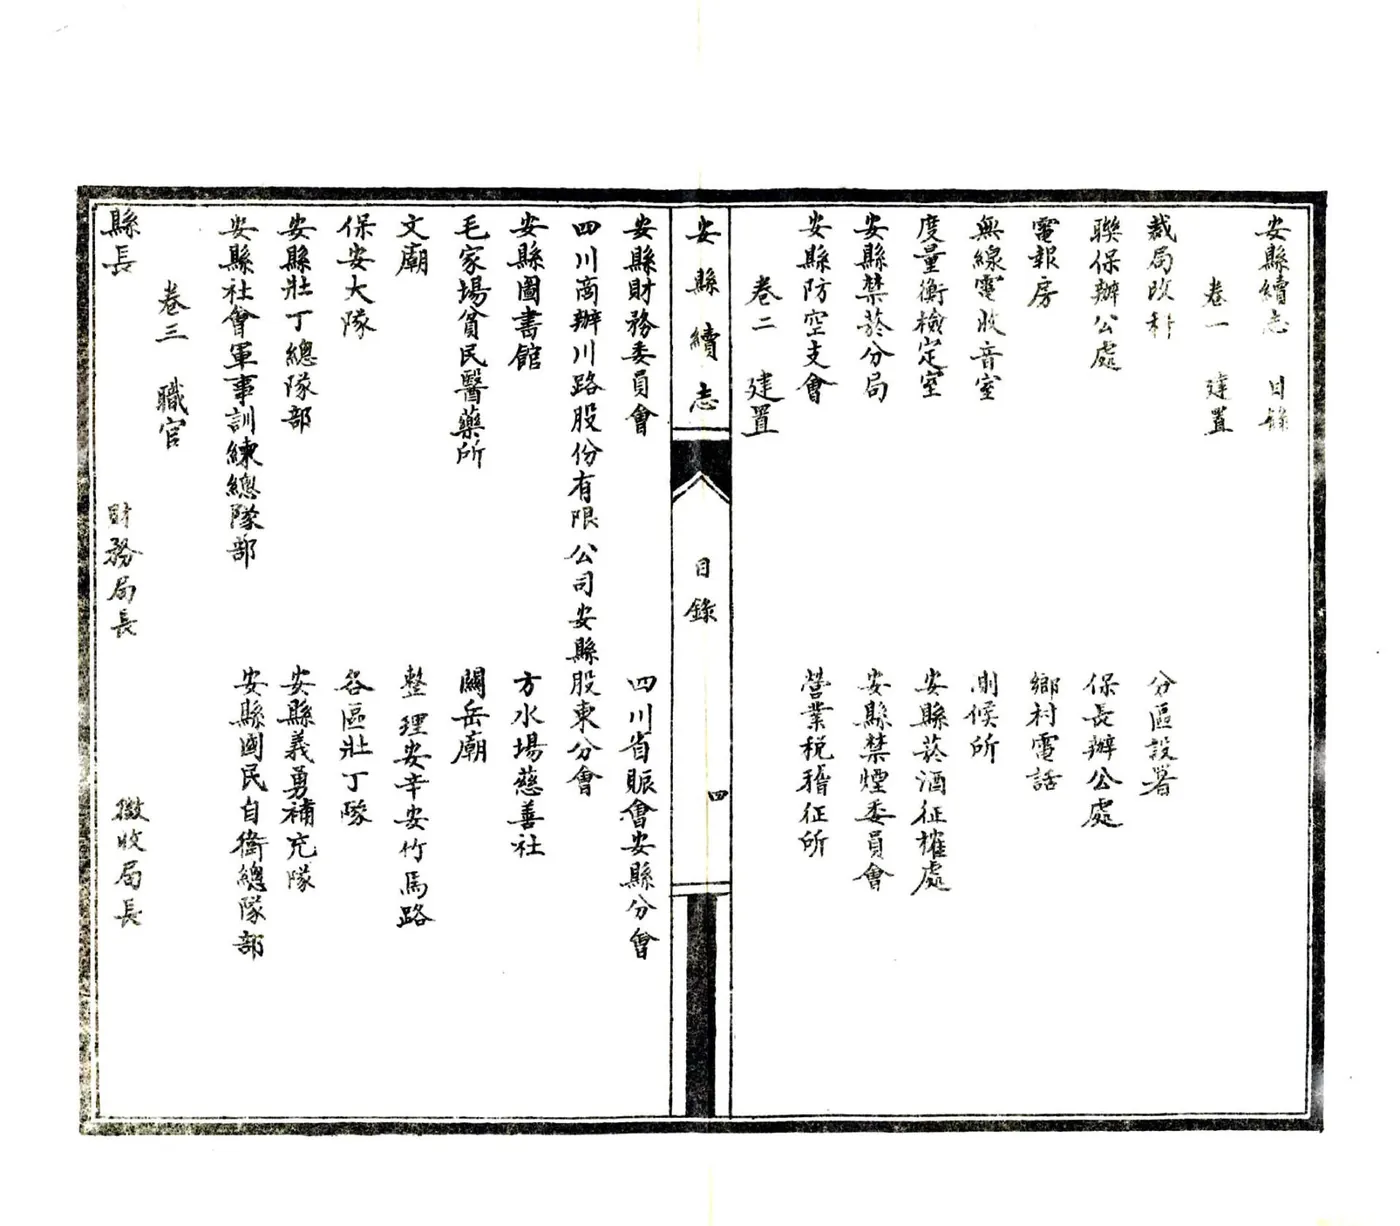 安縣續志 目錄
卷一 建置
裁局改科 分區設署
聯保辦公處 保長辦公處
電報房 鄉村電話
無線電收音室 測候所
度量衡檢定室 安縣菸酒征榷處
安縣禁菸分局 安縣禁煙委員會
安縣防空支會 營業稅稽征所
卷二 建置
安縣續志 目錄 四
安縣財務委員會 四川省賑會安縣分會
四川商辦川路股份有限公司安縣股東分會
安縣圖書館 方水場慈善社
毛家場貧民醫藥所 關岳廟
文廟 整理安辛安竹馬路
保安大隊 各區壯丁隊
安縣壯丁總隊部 安縣義勇補充隊
安縣社會軍事訓練總隊部 安縣國民自衛總隊部
卷三 職官
縣長 財務局長 徵收局長